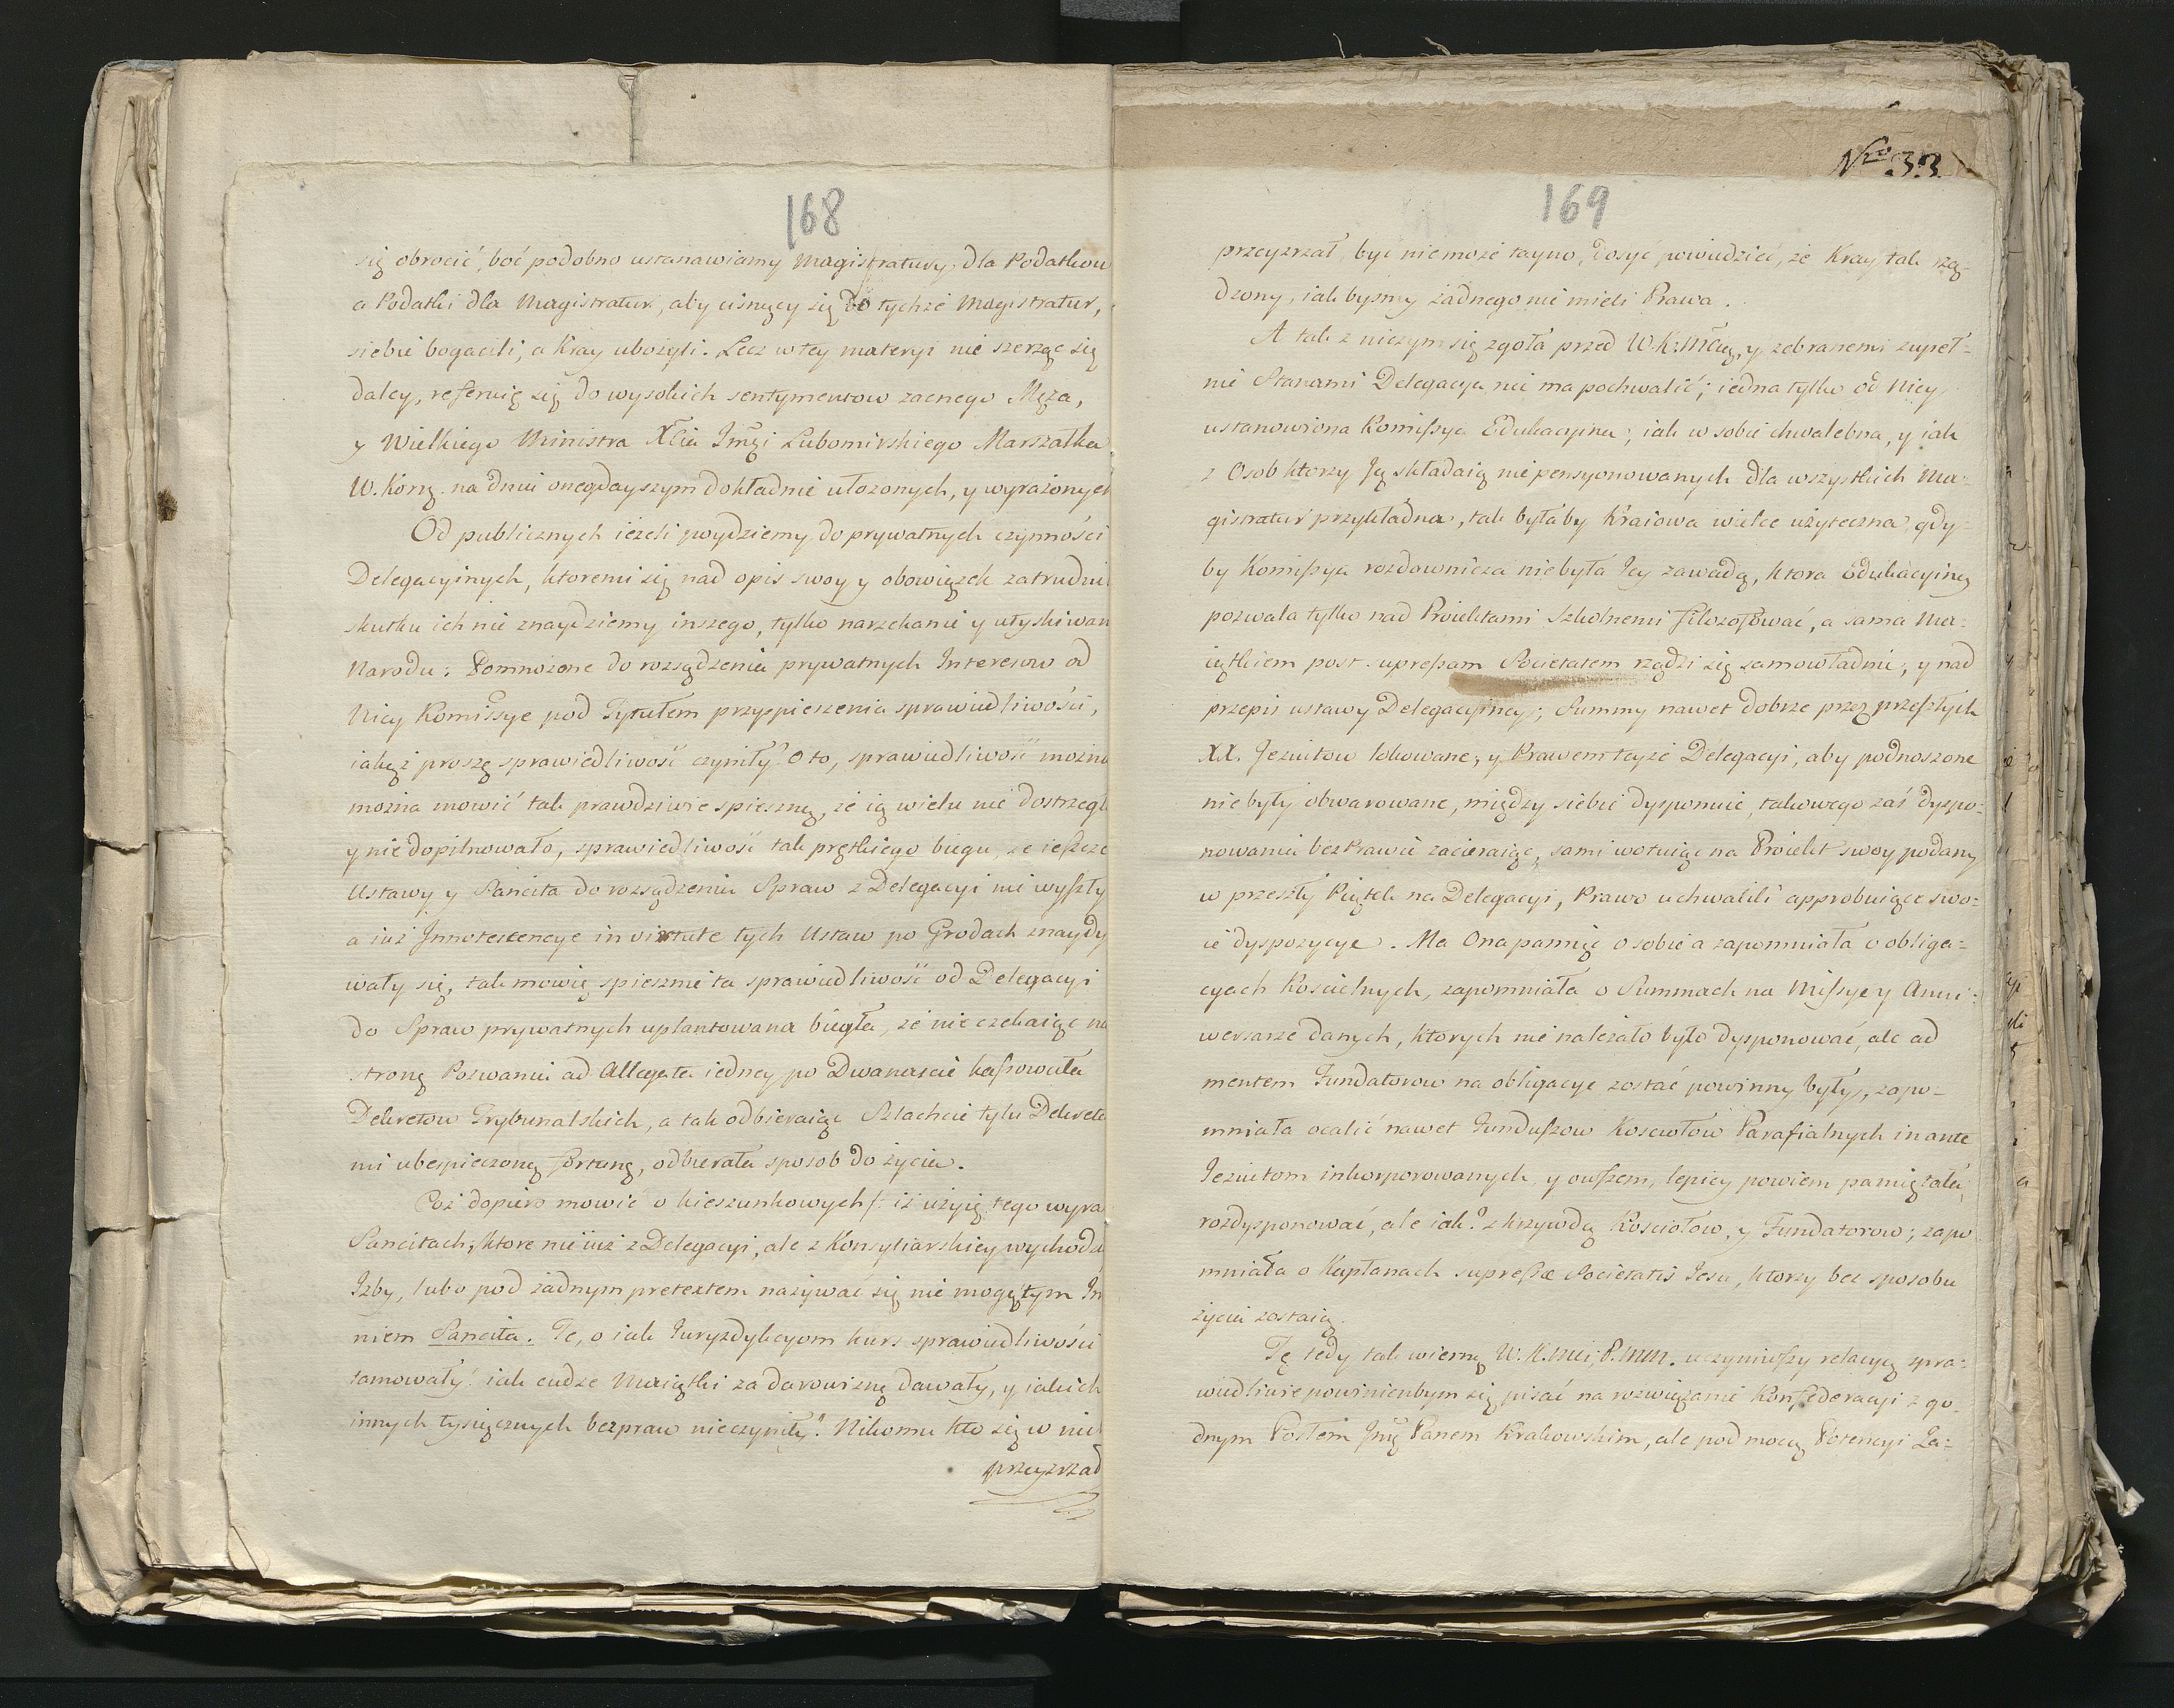 168
się obrocić, boć podobno ustanawiamy Magistratury dla Podatkow
a Podatki dla Magistratur, aby cisnący się do tychże Magistratur,
siebie bogacili, a Kray ubożyli. Lecz w tey materyi nie szerząc się
daley, referuię się do wysokich sentymentow zacnego Męża,
y Wielkiego Ministra Xcia Jmći Lubomirskiego Marszałka
W. Korrg. na dniu onegdayszym dokładnie ułożonych, y wyrażonych
Od publicznych ieżeli poydziemy do prywatnych czynności
Delegacyinych, ktoremi się nad opis swoy y obowiązek zatrudni
skutku ich nie znaydziemy inszego, tylko narzekanie y utyskiwan
Narodu: Pomnożone do rozsądzenia prywatnych Interesow od
Niey Komissye pod Tytułem przyspieszenia sprawiedliwości,
iakąż proszę sprawiedliwość czyniły? Oto, sprawiedliwość możno
można mowić tak prawdziwie spieszną, że ią wielu nie dostrzegł
y nie dopilnowało, sprawiedliwość tak prętkiego biegu, że ieszcze
Ustawy y Sancita do rozsądzenia Spraw z Delegacyi nie wyszły
a iuż Innotescencye in virtute tych Ustaw po Grodach znaydy
wały się, tak mowię spiesznie ta sprawiedliwość od Delegacyi
do Spraw prywatnych uplantowana biegła, że nie czekaiąc na
stronę Pozwania ad Allegata iedney po Dwanaście kassowała
Dekretow Trybunalskich, a tak odbieraiąc Szlachcie tylu Dekreta
mi ubespieczoną fortunę, odbierała sposob do życia.
Coż dopiero mowić o kieszunkowych /: iż użyię tego wyra
Sancitach, ktore nie iuż z Delegacyi, ale z Konsyliarskiey wychodzi
Izby, lubo pod żadnym pretextem nazywać się nie mogą tym Im
niem Sancita. Te, o iak Juryzdykcyom kurs sprawiedliwości
tamowały! iak cudze Maiątki za darowiznę dawały, y iakich
innych tysiącznych bezpraw nie czyniły? Nikomu kto się w nie
przeyzrzał
Nro 33
169
przeyzrzał, być nie może tayno, dosyć powiedzieć, że Kray tak rzą-
dzony, iak byśmy żadnego nie mieli Prawa.
A tak z niczym się zgoła przed W. K. Mcią, y zebranemi zupeł-
nie Stanami Delegacya nie ma pochwalić; iedna tylko od Niey
ustanowiona Komissya Edukacyina, iak w sobie chwalebna, y iak
z Osob ktorzy Ją składaią nie pensyonowanych dla wszystkich Ma-
gistratur przykładna, tak byłaby Kraiowa wielce użyteczna gdy-
by Komissya rozdownicza nie była Jey zawadą, ktora Edukacyiną
pozwala tylko nad Proiektami Szkolnemi filozofować, a sama Ma-
iątkiem post supressam Societatem rządzi się samowładnie, y nad
przepis ustawy Delegacyiney; Summy nawet dobrze przez przeszłych
XX. Jezuitow lokowane, y Prawem teyże Delegacyi, aby podnoszone
nie były obwarowane, między siebie dysponuie, takowego zaś dyspo-
nowania bezprawie zacieraiąc, sami wotuiąc na Proiekt swoy podany
w przeszły Piątek na Delegacyi, Prawo uchwalili approbuiące swo-
ie dyspozycye. Ma Ona pamięć o sobie a zapomniała o obliga-
cyach Kościelnych, zapomniała o Summach na Missye y Anni-
wersarze danych, ktorych nie należało było dysponować, ale ad
mentem Fundatorow na obligacye zostać powinny były, zapo-
mniała ocalić nawet Funduszow Kosciołow Parafialnych in ante
Jezuitom inkorporowanych, y owszem, lepiey powiem pamiętała
rozdysponować, ale iak? z krzywdą Kosciołow, y Fundatorow; zapo
mniała o Kapłanach supressæ Societatis Jesu, ktorzy bez sposobu
życia zostaią.
Tę tedy tak wierną W. K. Mci, P. M M. uczyniwszy relacyą spra-
wiedliwie powinienbym się pisać na rozwiązanie Konfederacyi z go-
dnym Posłem Jmć Panem Krakowskim, ale pod mocą Potencyi Za-